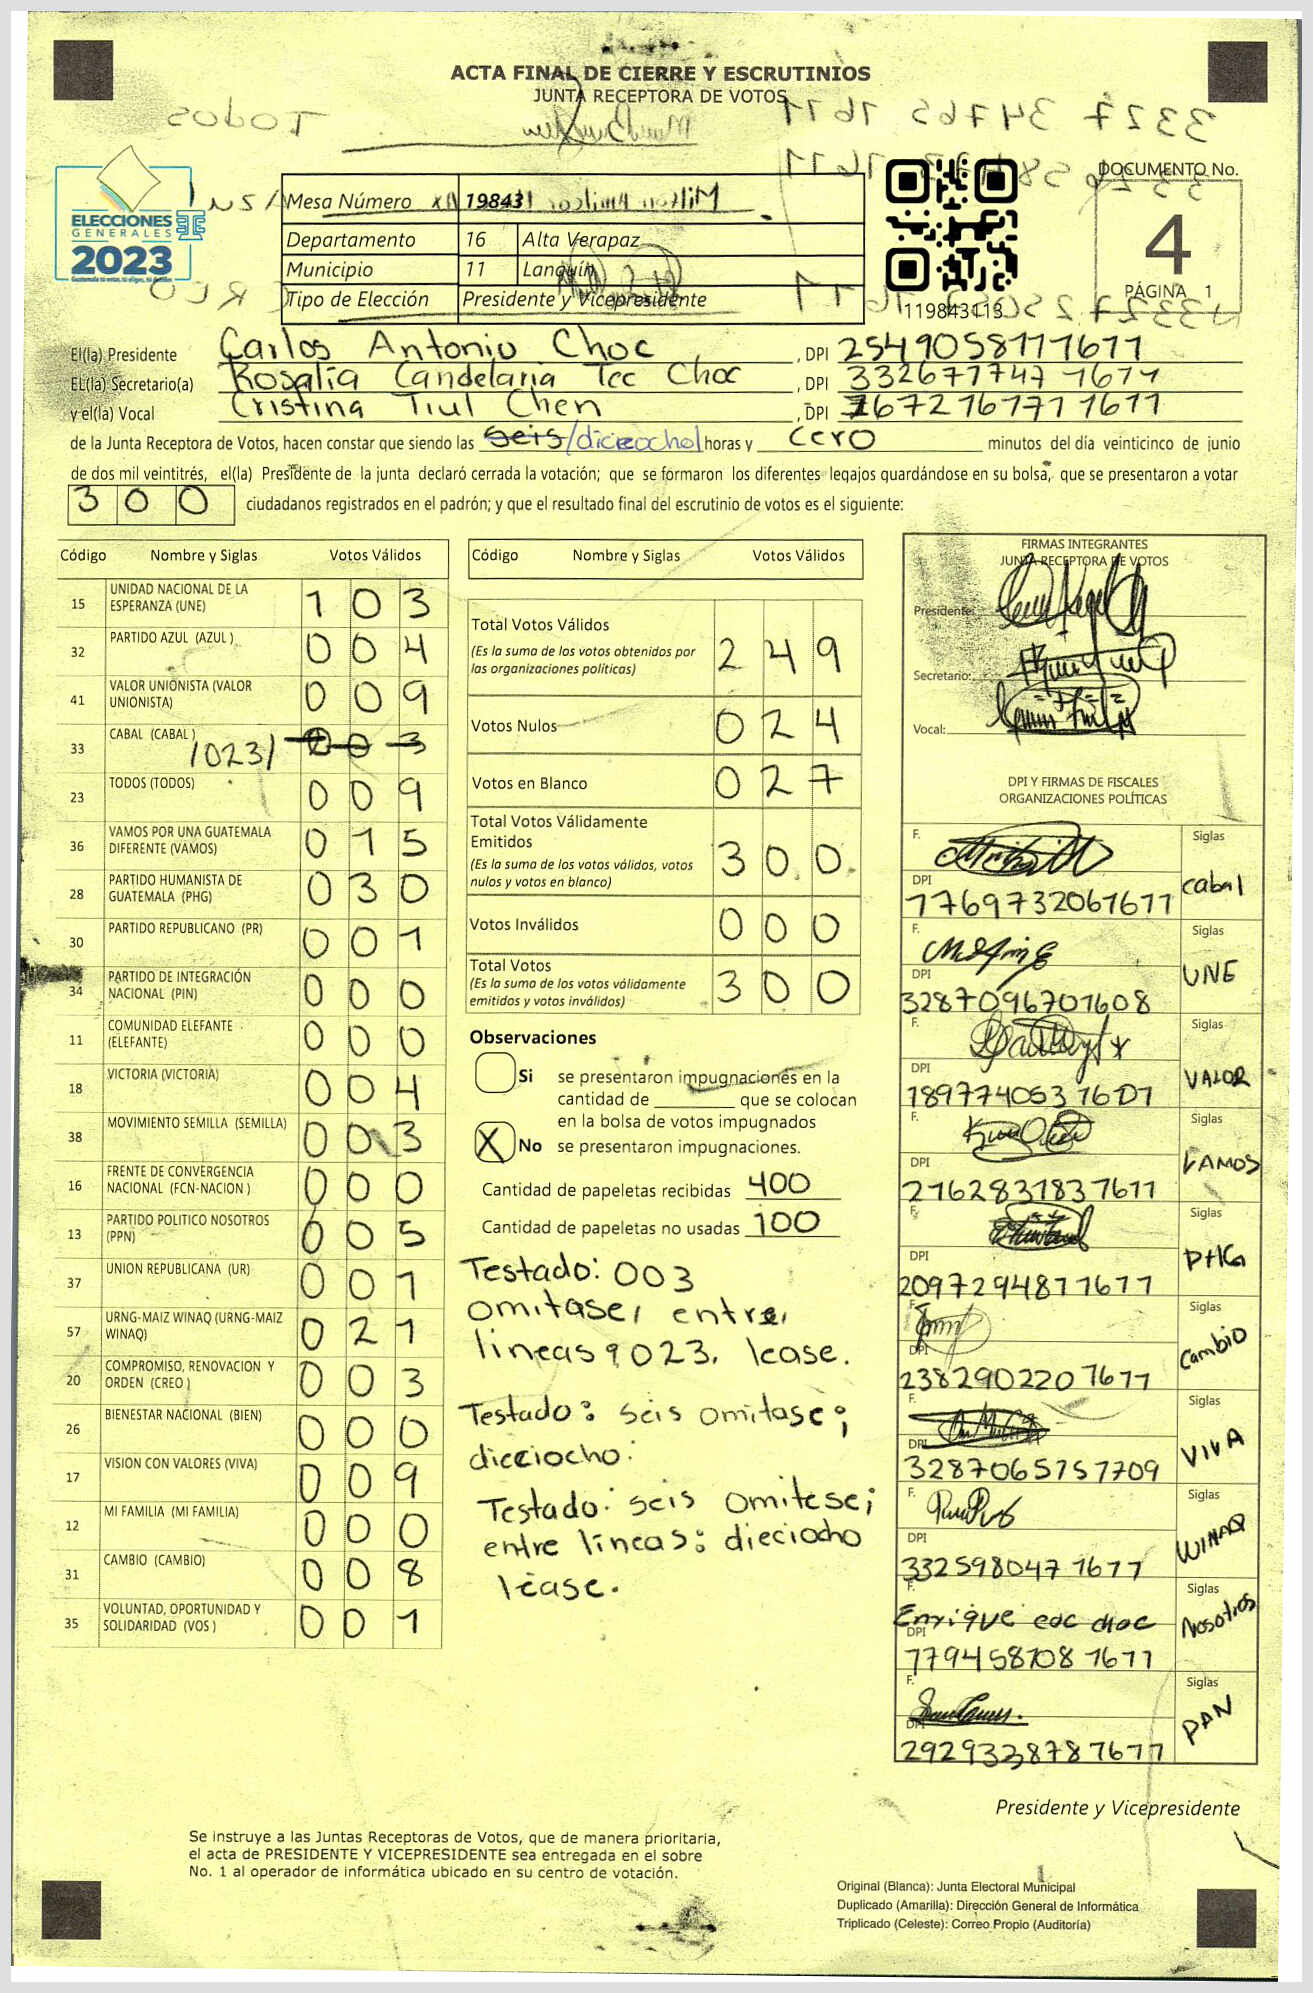 ACTA FINAL DE CIERRE Y ESCRUTINIOS
JUNTA RECEPTORA DE VOTOS
ELECCIONES
GENERALES
2023
Mesa Número 19843
Departamento 16 Alta Verapaz
Municipio 11 Lanquín
Tipo de Elección Presidente y Vicepresidente
119843113
DOCUMENTO No.
4
PÁGINA 1
El(la) Presidente Carlos Antonio Choc , DPI 2549058111611
EL(la) Secretario(a) Rosalia Candelaria Tec Choc , DPI 3326777471611
y el(la) Vocal Cristina Tiul Chen , DPI
de la Junta Receptora de Votos, hacen constar que siendo las seis /diceocho/ horas y cero minutos del día veinticinco de junio
de dos mil veintitrés, el(la) Presidente de la junta declaró cerrada la votación; que se formaron los diferentes legajos guardándose en su bolsa, que se presentaron a votar
300 ciudadanos registrados en el padrón; y que el resultado final del escrutinio de votos es el siguiente:
Código Nombre y Siglas Votos Válidos
15 UNIDAD NACIONAL DE LA ESPERANZA (UNE) 103
32 PARTIDO AZUL (AZUL ) 004
41 VALOR UNIONISTA (VALOR UNIONISTA) 009
33 CABAL (CABAL ) /023/ 003
23 TODOS (TODOS) 009
36 VAMOS POR UNA GUATEMALA DIFERENTE (VAMOS) 015
28 PARTIDO HUMANISTA DE GUATEMALA (PHG) 030
30 PARTIDO REPUBLICANO (PR) 001
34 PARTIDO DE INTEGRACIÓN NACIONAL (PIN) 000
11 COMUNIDAD ELEFANTE (ELEFANTE) 000
18 VICTORIA (VICTORIA) 004
38 MOVIMIENTO SEMILLA (SEMILLA) 003
16 FRENTE DE CONVERGENCIA NACIONAL (FCN-NACION ) 000
13 PARTIDO POLITICO NOSOTROS (PPN) 005
37 UNION REPUBLICANA (UR) 001
57 URNG-MAIZ WINAQ (URNG-MAIZ WINAQ) 021
20 COMPROMISO, RENOVACION Y ORDEN (CREO ) 003
26 BIENESTAR NACIONAL (BIEN) 000
17 VISION CON VALORES (VIVA) 009
12 MI FAMILIA (MI FAMILIA) 000
31 CAMBIO (CAMBIO) 008
35 VOLUNTAD, OPORTUNIDAD Y SOLIDARIDAD (VOS ) 001
Código Nombre y Siglas Votos Válidos
Total Votos Válidos 249
(Es la suma de los votos obtenidos por
las organizaciones políticas)
Votos Nulos 024
Votos en Blanco 027
Total Votos Válidamente
Emitidos 300
(Es la suma de los votos válidos, votos
nulos y votos en blanco)
Votos Inválidos 000
Total Votos 300
(Es la suma de los votos válidamente
emitidos y votos inválidos)
Observaciones
Si se presentaron impugnaciones en la
cantidad de ________ que se colocan
en la bolsa de votos impugnados
X No se presentaron impugnaciones.
Cantidad de papeletas recibidas 400
Cantidad de papeletas no usadas 100
Testado: 003
omitase, entre,
lineas, 023. lease.
Testado: seis omitase;
dieciocho.
Testado: seis omitese;
entre lineas: dieciocho
léase.
FIRMAS INTEGRANTES
JUNTA RECEPTORA DE VOTOS
Presidente:
Secretario:
Vocal:
DPI Y FIRMAS DE FISCALES
ORGANIZACIONES POLÍTICAS
F. Siglas
DPI 1769732061611 cabal
F. Siglas
DPI 3287096701608 UNE
F. Siglas
DPI 1897740531601 VALOR
F. Siglas
DPI 2162831831611 VAMOS
F. Siglas
DPI 2097294811611 PHG
F. Siglas
DPI 2382902201611 Cambio
F. Siglas
DPI 3287065151709 VIVA
F. Siglas
DPI 3325980471611 WINAQ
F. Enrique coc choc Siglas
DPI 1794581081611 Nosotros
F. Siglas
DPI 2929338781611 PAN
Presidente y Vicepresidente
Se instruye a las Juntas Receptoras de Votos, que de manera prioritaria,
el acta de PRESIDENTE Y VICEPRESIDENTE sea entregada en el sobre
No. 1 al operador de informática ubicado en su centro de votación.
Original (Blanca): Junta Electoral Municipal
Duplicado (Amarilla): Dirección General de Informática
Triplicado (Celeste): Correo Propio (Auditoría)